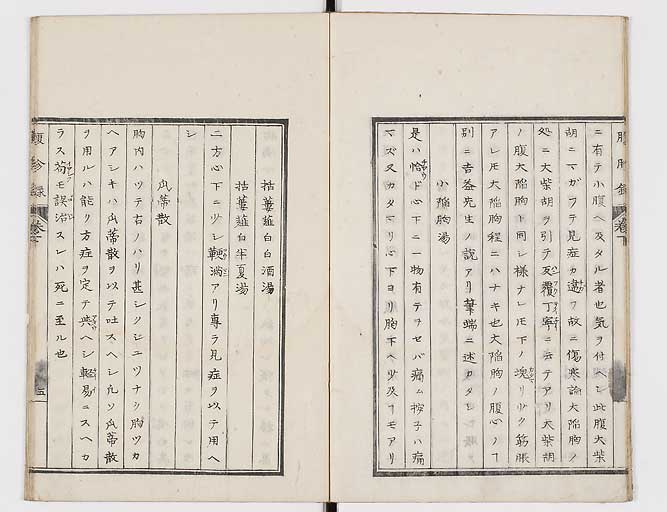 腹診録
巻下
ニ有テ小腹ヘ及タル者也気ヲ付ヘシ此腹大柴
胡ニマガフテ見症カ違フ故ニ傷寒論大陥胸ノ
処ニ大柴胡ヲ引テ反覆丁寧ニ云テアリ大柴胡
ノ腹大陥胸ト同シ様ナレ𪜈下ノ塊リ少ク筋脹
アレ𪜈大陥胸程ニハナキ也大陥胸ノ腹心ノヿ
別ニ吉益先生ノ説アリ筆端ニ述カタシ
小陥胸湯
是ハ恰ド心下ニ一物有テヲセバ痛ム按子ハ痛
マズ又カタマリ心下ヨリ胸下ヘ少及フモアリ
括蔞薤白白酒湯
括蔞薤白半夏湯
二方心下ニ少シ鞕満アリ専ラ見症ヲ以テ用ヘ
シ
瓜蒂散
胸内ハツテ右ノハリ甚シクシユツナク胸ツカ
ヘアシキハ瓜蒂散ヲ以テ吐スヘシ凢ソ瓜蒂散
ヲ用ルハ能ク方症ヲ定テ與ヘシ輕易ニスヘカ
ラス苟モ誤治スレハ死ニ至ル也
腹診録
巻下
五